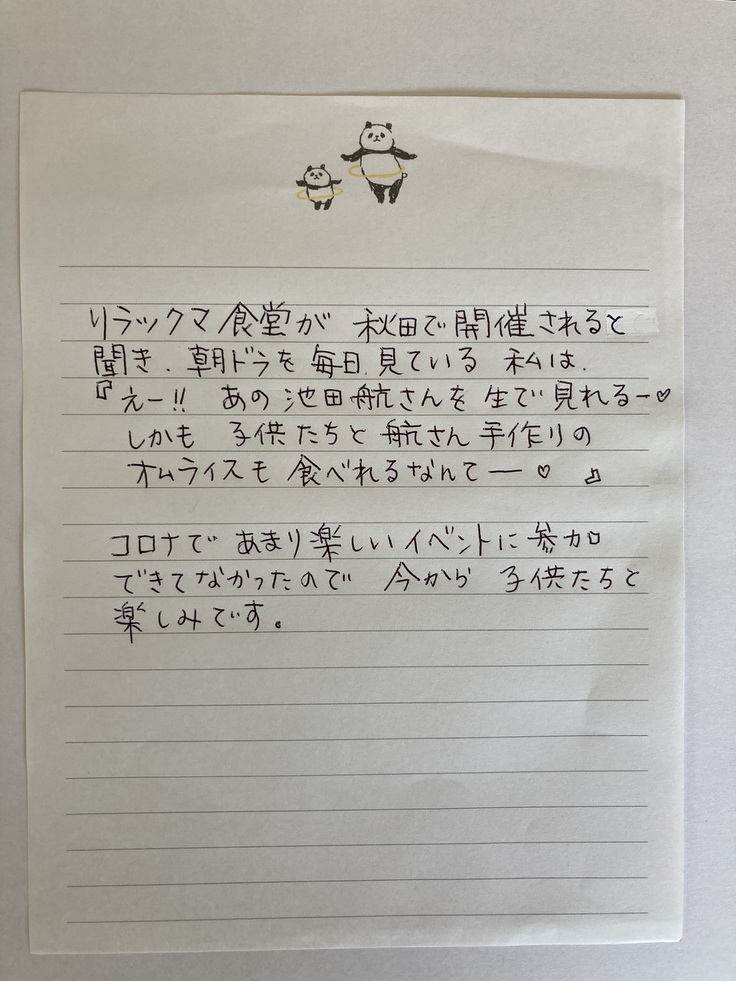 リラックマ食堂が 秋田で開催されると
聞き、朝ドラを毎日見ている 私は、
『えー!! あの池田航さんを生で見れるー♡
しかも 子供たちと航さん手作りの
オムライスも食べれるなんてー♡ 』
コロナで あまり楽しいイベントに参加
できてなかったので 今から 子供たちと
楽しみです。